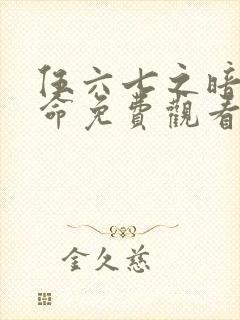 伍六七之暗
命免費觀看
金久慈